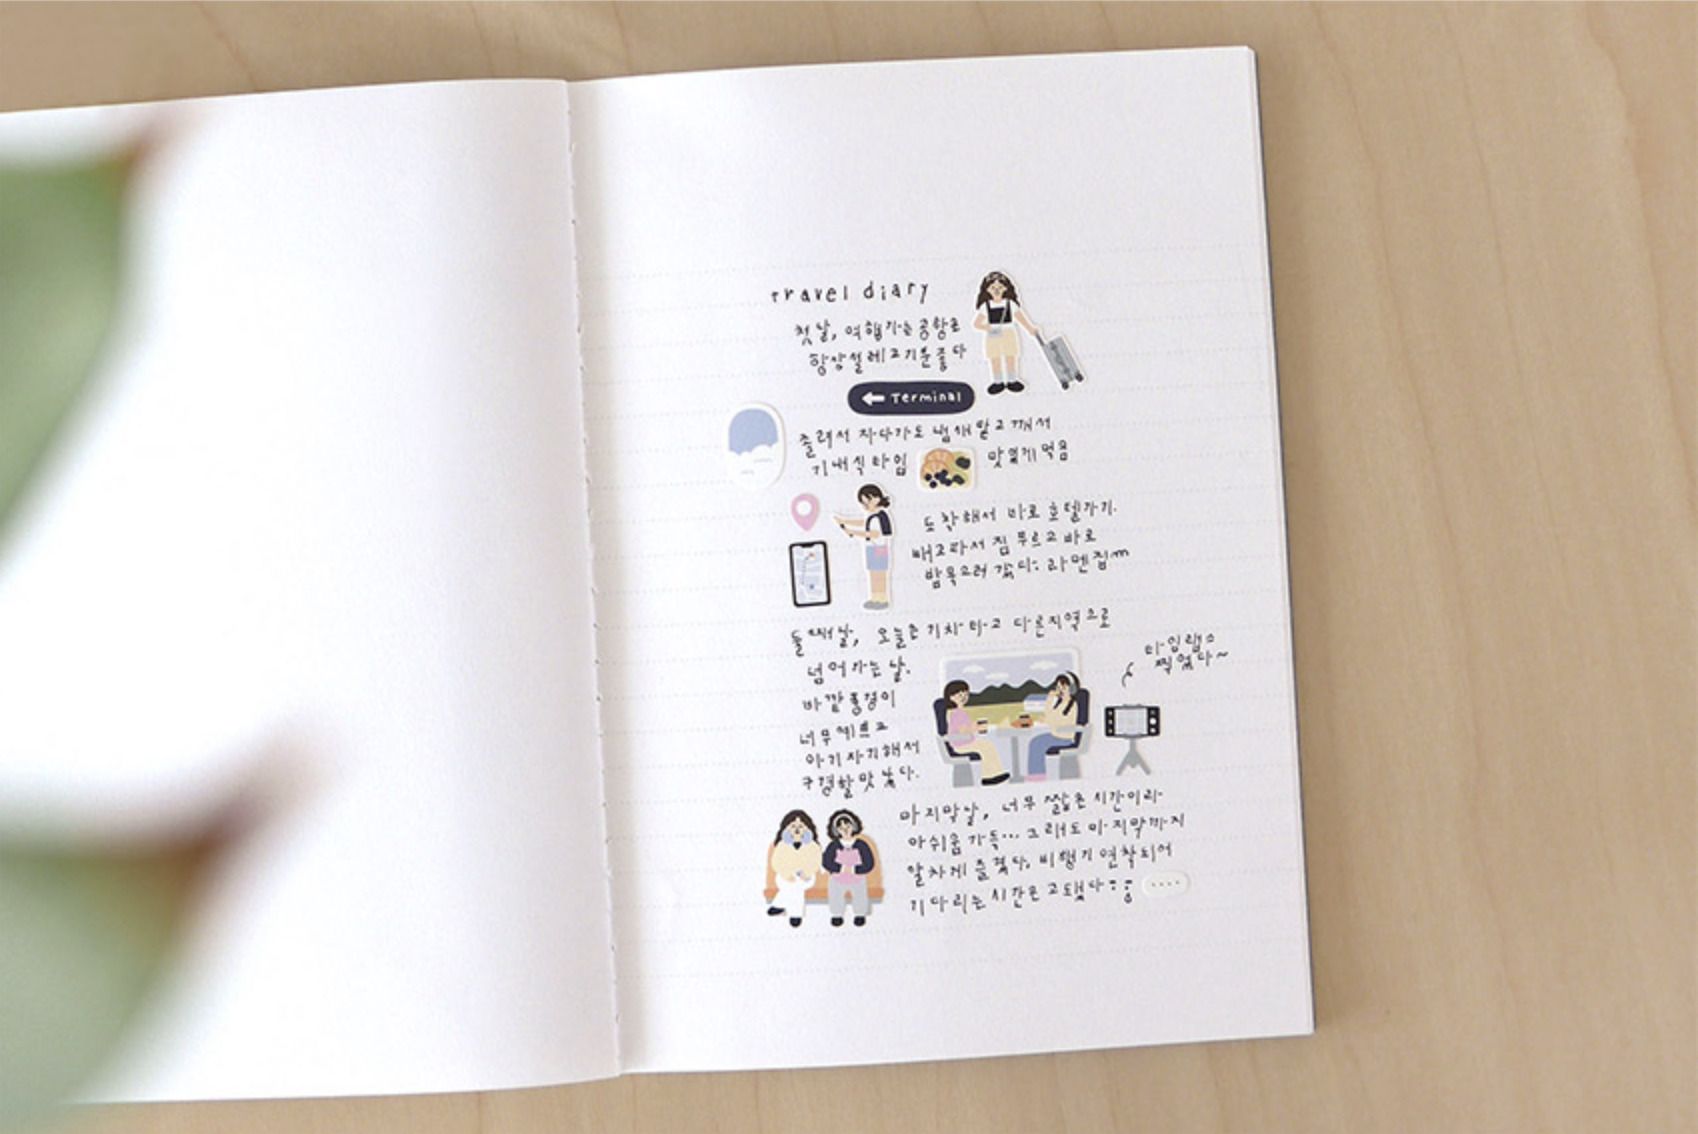 travel diary
첫날, 여행가는 공항은
항상 설레고 기분 좋다
← Terminal
졸려서 자다가도 냄새 맡고 깨서
기내식 타임 맛있게 먹음
도착해서 바로 호텔가기.
배고파서 짐 푸르고 바로
밥 먹으러 갔다: 라멘집m
둘째날, 오늘은 기차타고 다른지역으로
넘어가는 날.
바깥 풍경이
너무 예쁘고
아기자기해서
구경할 맛 났다.
타임랩스
찍었다~
마지막날, 너무 짧은 시간이라
아쉬움 가득... 그래도 마지막까지
알차게 즐겼다. 비행기 연착되어
기다리는 시간은 고됐다
....